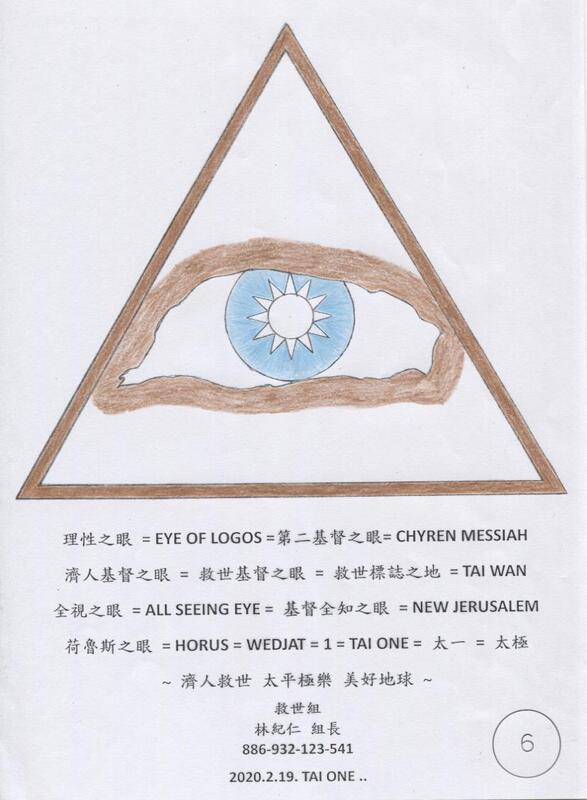 理性之眼 = EYE OF LOGOS =第二基督之眼= CHYREN MESSIAH
濟人基督之眼 = 救世基督之眼 = 救世標誌之地 = TAI WAN
全視之眼 = ALL SEEING EYE = 基督全知之眼 = NEW JERUSALEM
荷魯斯之眼 = HORUS = WEDJAT = 1 = TAI ONE = 太一 = 太極
~ 濟人救世 太平極樂 美好地球 ~
救世組
林紀仁 組長
886-932-123-541
2020.2.19. TAI ONE ..
6